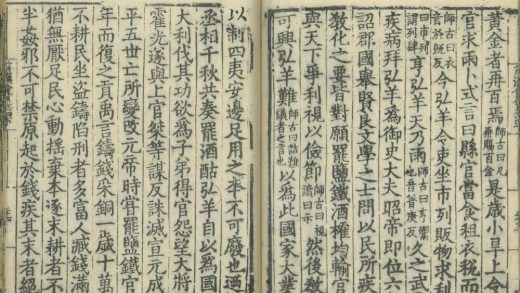 黃金者再百焉師古曰凡再賜百金是歲小旱上令
官求雨卜式言曰縣官當食租衣稅而
師古曰衣音於既反今弘羊令吏坐市列販物求利
師古曰市列謂列肆亨弘羊天乃雨師古曰亨鬻也音普庚反久之武
疾病拜弘羊爲御史大夫昭帝即位六
詔郡國舉賢良文學之士問以民所疾
教化之要皆對願罷鹽鐵酒榷均輸官
與天下爭利視以儉節師古曰視讀曰示然後教
可興弘羊難師古曰詰難議者之言也以爲此國家大業
以制四夷安邊足用之本不可廢也迺
丞相千秋共奏罷酒酤弘羊自以爲國
大利伐其功欲爲子弟得官怨望大將
霍光遂與上官桀等謀反誅滅宣元成
平五世亡所變改元帝時嘗罷鹽鐵官
年而復之貢禹言鑄錢采銅一歲十萬
不耕民坐盜鑄陷刑者多富人臧錢滿
猶無厭足民心動搖棄本逐末耕者不
半姦邪不可禁原起於錢疾其末者絕